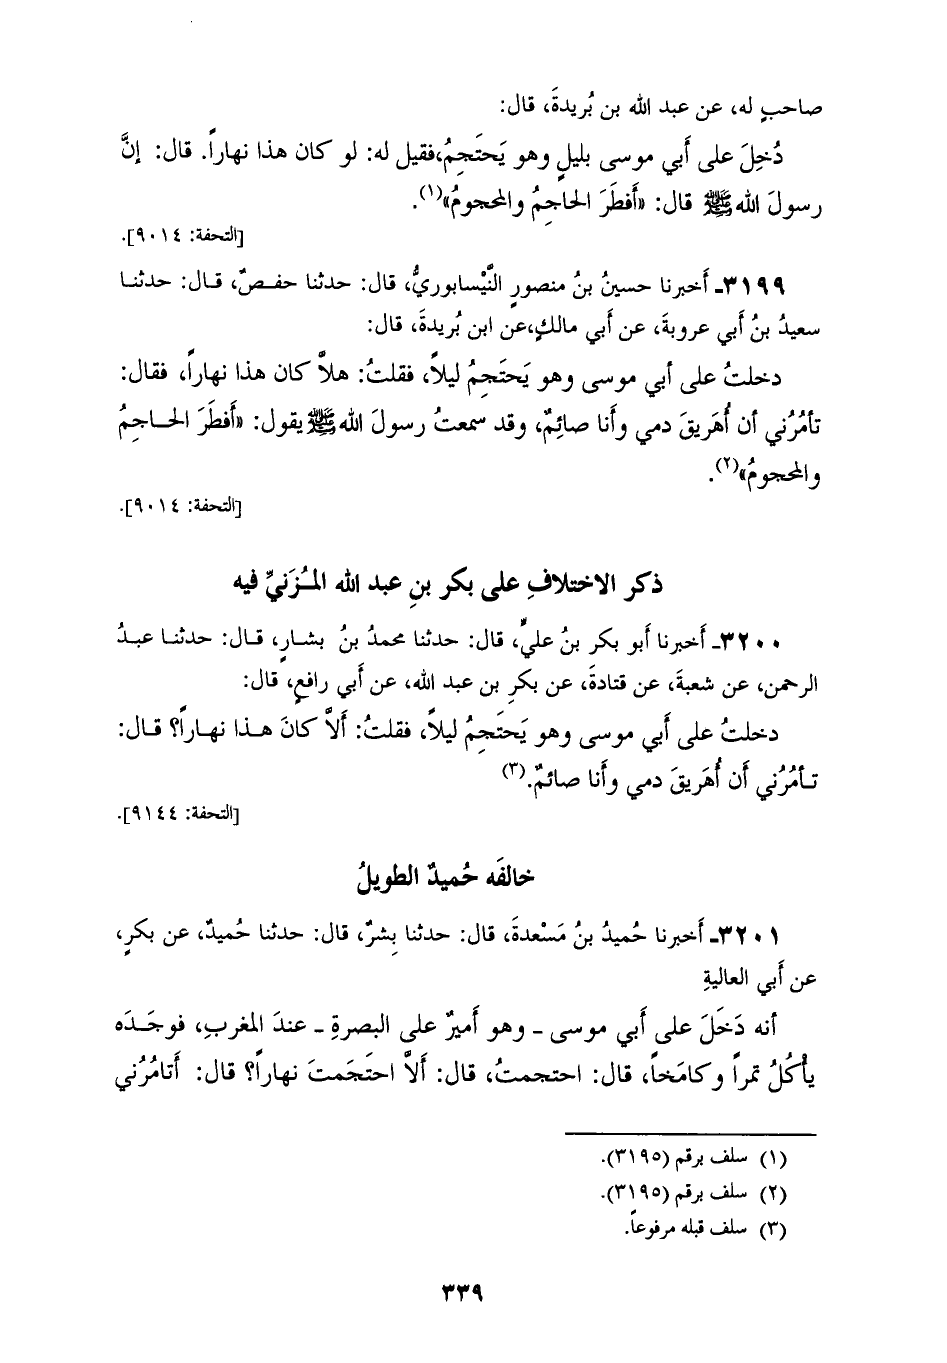 صاحبٍ له، عن عبد الله بن بُريدةَ، قال:
دُخِلَ على أَبي موسى بليلٍ وهو يَحتَجِمُ،فقيل له: لو كان هذا نهاراً. قال: إنَّ
رسولَ اللهﷺ قال: «أَفطَرَ الحاجِمُ والمحجومُ»(١).
[التحفة: ٩٠١٤].
٣١٩٩ـ أَخبرنا حسينُ بنُ منصورٍ النَّيْسابوريُّ، قال: حدثنا حفـصٌ، قـال: حدثنـا
سعيدُ بنُ أَبي عروبةَ، عن أَبي مالكٍ،عن ابن بُريدةَ، قال:
دخلتُ على أبي موسى وهو يَحتَجِمُ ليلاً، فقلتُ: هلاَّ كان هذا نهاراً، فقال:
تأمُرُني أن أُهَريقَ دمي وأَنا صائِمٌ، وقد سمعتُ رسولَ اللهﷺيقول: «أَفطَرَ الحـاجِمُ
والمحجومُ»(٢).
[التحفة: ٩٠١٤].
ذكر الاختلافِ على بكر بنِ عبد الله المـُزَنيِّ فيه
٣٢٠٠ـ أَخبرنا أَبو بكر بنُ عليٍّ، قال: حدثنا محمدُ بنُ بشـارٍ، قـال: حدثنـا عبـدُ
الرحمن، عن شعبةَ، عن قتادةَ، عن بكرِ بن عبد الله، عن أَبي رافعٍ، قال:
دخلتُ على أَبي موسى وهو يَحتَجِمُ ليلاً، فقلتُ: أَلاَّ كانَ هـذا نهـاراً؟ قـال:
تـأمُرُني أَن أُهَريقَ دمي وأَنا صائمٌ.(٣)
[التحفة: ٩١٤٤].
خالفَه حُميدٌ الطويلُ
٣٢٠١ـ أَخبرنا حُميدُ بنُ مَسْعدةَ، قال: حدثنا بِشرٌ، قال: حدثنا حُميدٌ، عن بكرٍ،
عن أَبي العاليةِ
أنه دَخَلَ على أَبي موسى ـ وهو أَميرٌ على البصرةِ ـ عندَ المغربِ، فوجَـدَه
يأْكُلُ تمراً وكامَخاً، قال: احتجمتُ، قال: أَلاَّ احتَجَمتَ نهاراً؟ قال: أَتامُرُني
(١) سلف برقم (٣١٩٥).
(٢) سلف برقم (٣١٩٥).
(٣) سلف قبله مرفوعاً.
٣٣٩